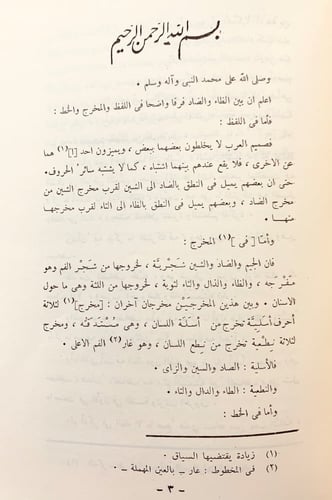 بسم الله الرحمن الرحيم
وصلى الله على محمد النبى وآله وسلم .
اعلم ان بين الظاء والضاد فرقا واضحا فى اللفظ والمخرج والخط :
فأما فى اللفظ :
فصميم العرب لا يخلطون بعضهما ببعض ، ويميزون احد [ا](١) هما
عن الاخرى ، فلا يقع عندهم بينهما اشتباه ، كما لا يشتبه سائر الحروف.
حتى ان بعضهم يميل فى النطق بالضاد الى الشين لقرب مخرج الشين من
مخرج الضاد ، وبعضهم يميل فى النطق بالظاء الى الثاء لقرب مخرجها
منها .
وأما [ فى ](١) المخرج :
فان الجيم والضاد والشين شَجْريَّة ، لخروجها من شَجْر الفم وهو
مَفْرجه ، والظاء والذال والثاء لثوية ، لخروجها من اللثة وهى ما حول
الاسنان . وبين هذين المخرجَيْن مخرجان آخران : [مخرج](١) لثلاثة
أحرف أسَلِيَّة تخرج من أسَلَة اللسان ، وهى مُسْتَدَقُّه ، ومخرج
لثلاثة نِطعية تخرج من نِطع اللسان ، وهو غار(٢) الفم الاعلى .
فالأسلية : الصاد والسين والزاى .
والنطعية : الطاء والدال والتاء .
وأما فى الخط :
(١) زيادة يقتضيها السياق .
(٢) فى المخطوط : عار ــ بالعين المهملة ــ .
ــ ٣ ــ